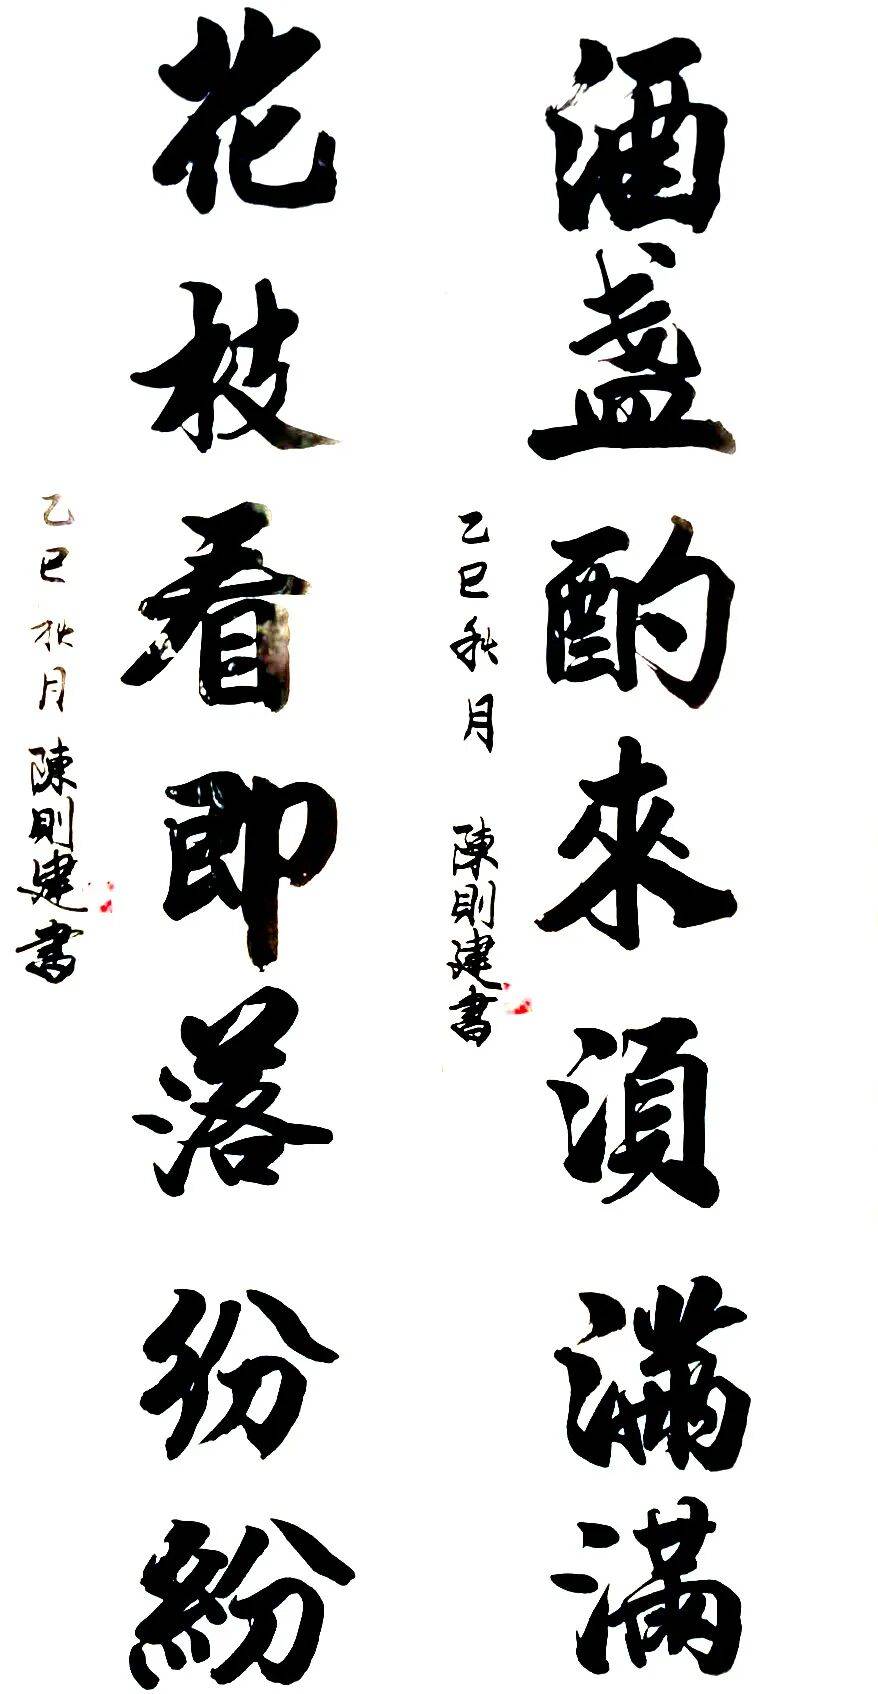 酒盞酌來須滿滿
乙巳秋月 陳則建書
花枝看即落紛紛
乙巳秋月陳則建書